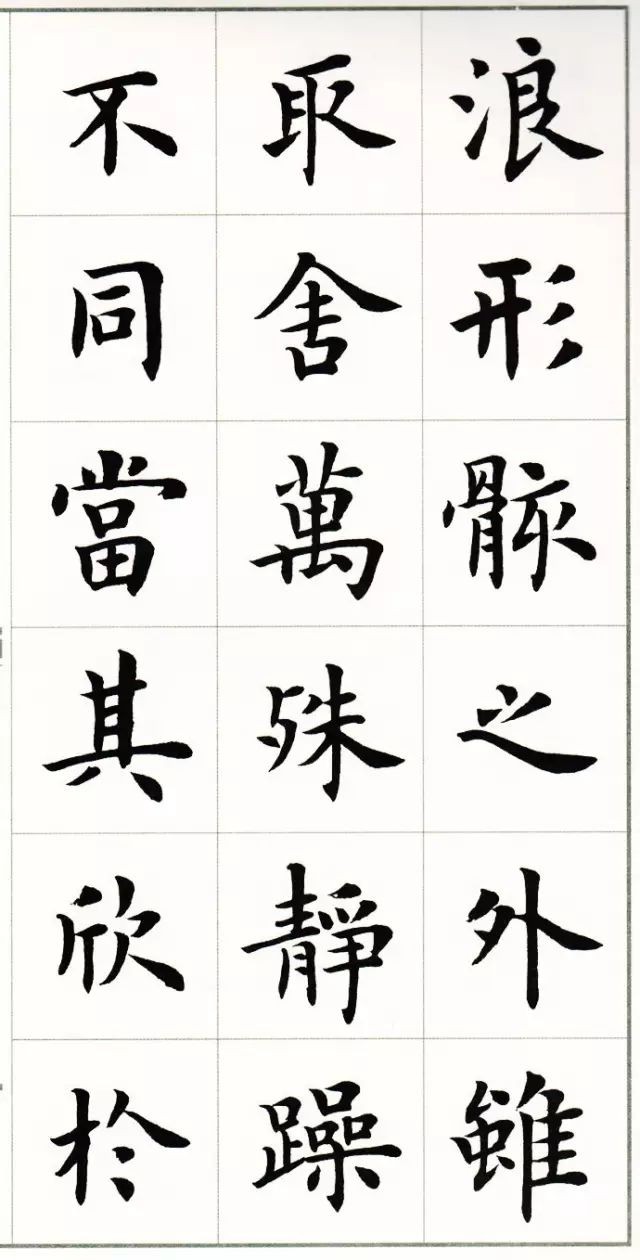 浪形骸之外雖
取舍萬殊靜躁
不同當其欣於